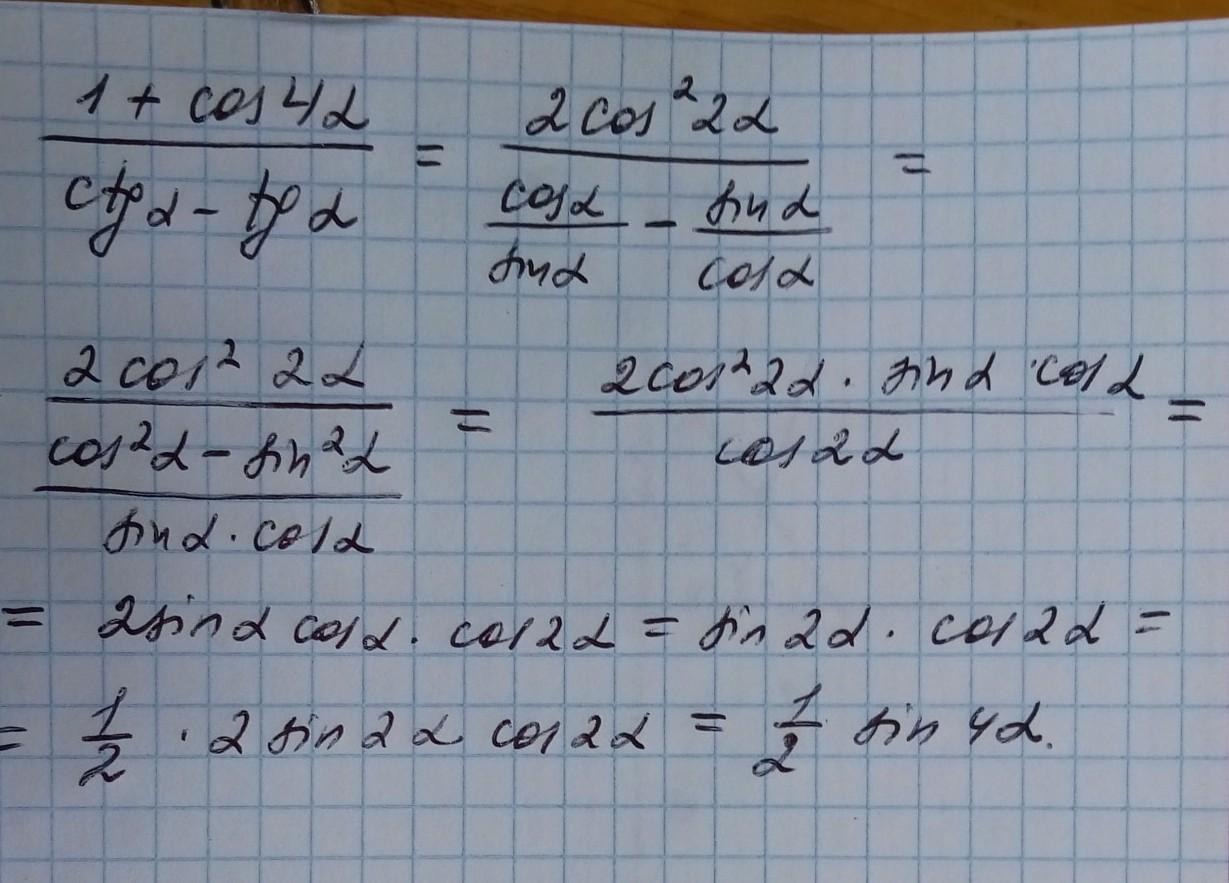 1 + cos 4α / ctg α − tg α = 2 cos² 2α / cos α / sin α − sin α / cos α =
2 cos² 2α / cos² α − sin² α / sin α · cos α = 2 cos² 2α · sin α · cos α / cos 2α =
= 2 sin α cos α · cos 2α = sin 2α · cos 2α =
= 1/2 · 2 sin 2α cos 2α = 1/2 sin 4α.